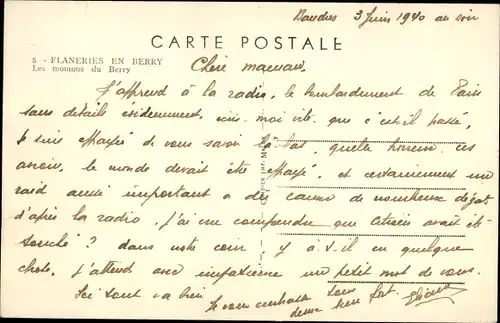 Baudres 3 Juin 1940 au soir
CARTE POSTALE
5 - FLANERIES EN BERRY
Les moutons du Berry
Chère maman,
J'apprend à la radio, le bombardement de Paris
sans details évidemment, vite, que s'est-il passé,
Je suis de vous savoir là-bas, quelle horreur ces
avions, le monde devait être et certainement un
raid aussi important a dû causer de nombreux dégats
d'après la radio, j'ai cru comprendre que Citroën avait été
touché? dans notre coin y a-t-il eu quelque
chose, j'attend avec impatience un petit mot de vous.
Ici tout va bien Je vous embrasse tous
deux bien fort